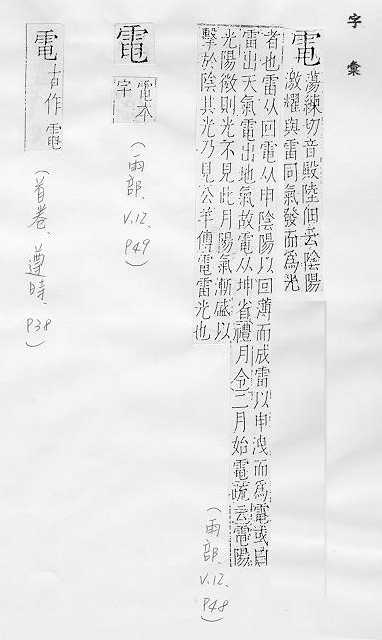 字彙
電 蕩練切音殿陸佃云陰陽
激耀與雷同氣發而為光
者也雷从回電从申陰陽以回薄而成雷以申洩而為電或曰
雷出天氣電出地氣故電从坤省禮月令二月始電疏云電陽
光陽微則光不見此月陽氣漸盛以
擊於陰其光乃見公羊傳電雷光也
(雨部、V.12、P48)
電 電本
字
(雨部、V.12、P49)
電 古作電
(首卷、遵時、P38)